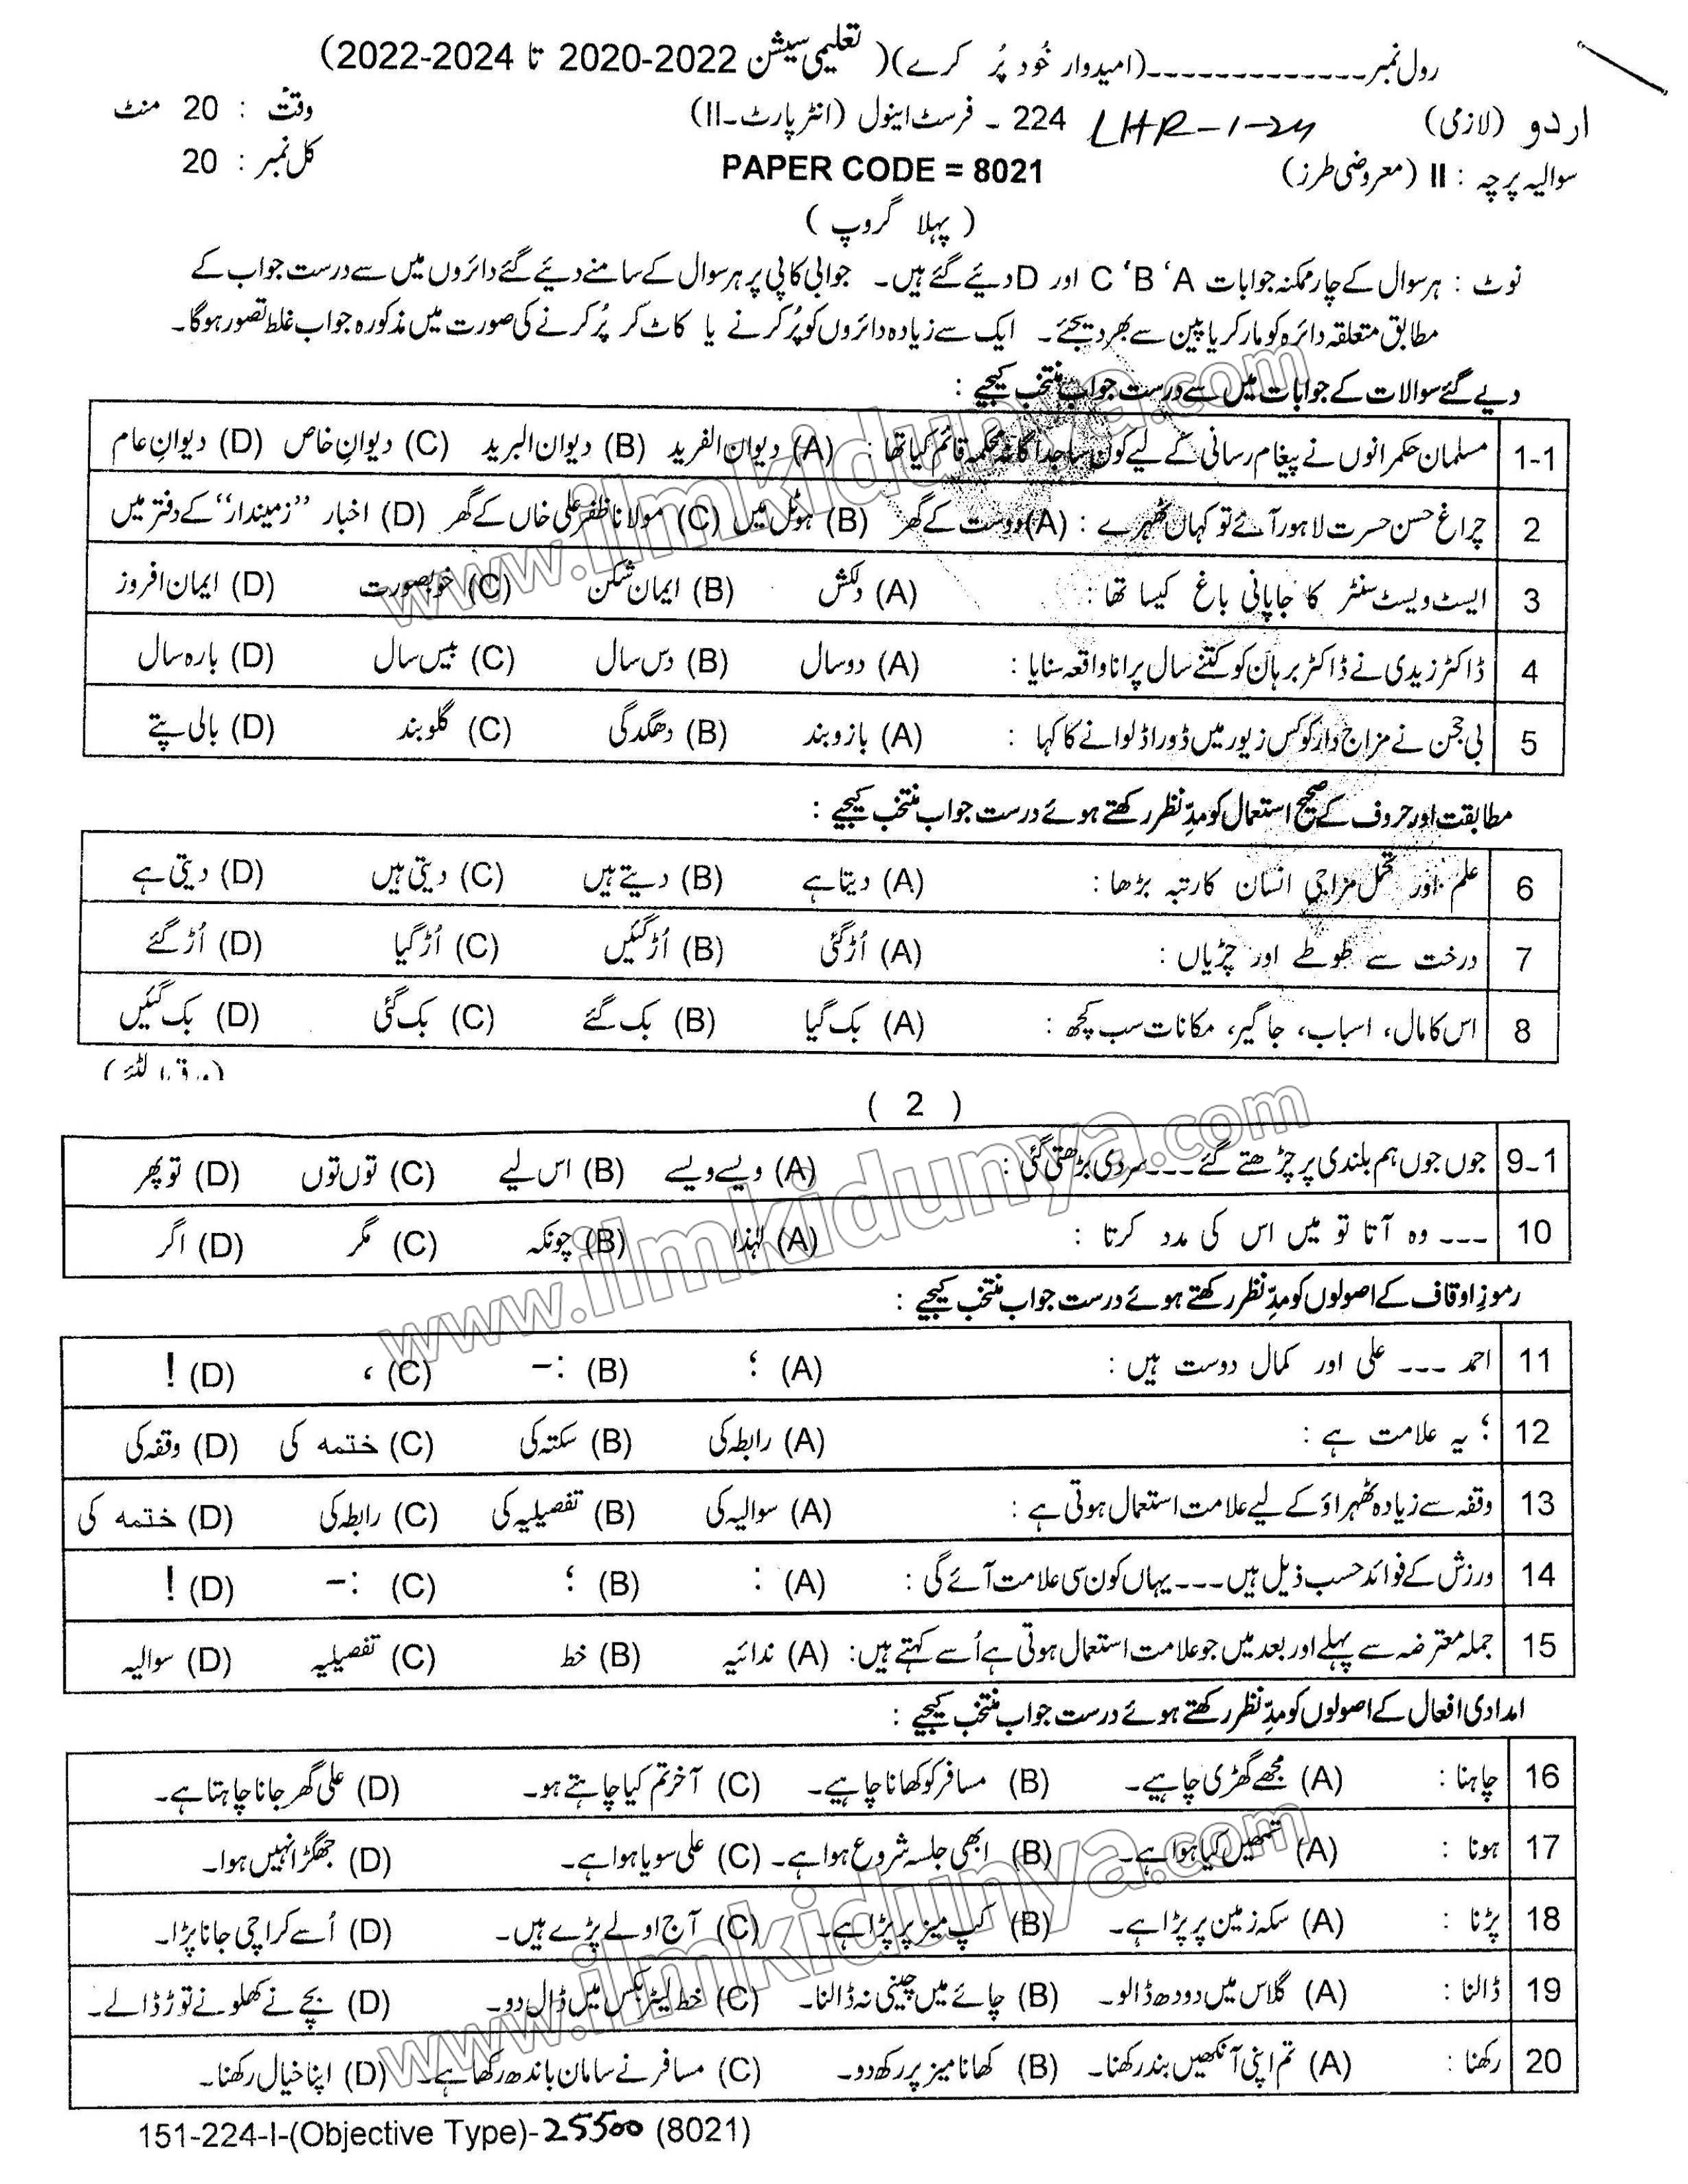 رول نمبر-------------(امیدوار خُود پُر کرے)( تعلیمی سیشن 2022-2020 تا 2024-2022)
اردو (لازمی) LHR-1-24 224 ۔ فرسٹ اینول (انٹر پارٹ۔II) وقت : 20 منٹ
سوالیہ پرچہ : II (معروضی طرز) PAPER CODE = 8021 کل نمبر : 20
( پہلا گروپ )
نوٹ : ہر سوال کے چار ممکنہ جوابات A ‘B ‘C اور D دیئے گئے ہیں۔ جوابی کاپی پر ہر سوال کے سامنے دیئے گئے دائروں میں سے درست جواب کے
مطابق متعلقہ دائرہ کو مارکر یا پین سے بھر دیجئے۔ ایک سے زیادہ دائروں کو پُر کرنے یا کاٹ کر پُر کرنے کی صورت میں مذکورہ جواب غلط تصور ہوگا۔
دیے گئے سوالات کے جوابات میں سے درست جواب منتخب کیجیے :
1-1 مسلمان حکمرانوں نے پیغام رسانی کے لیے کون سا جداگانہ محکمہ قائم کیا تھا : (A) دیوان الفرید (B) دیوان البرید (C) دیوانِ خاص (D) دیوانِ عام
2 چراغ حسن حسرت لاہور آئے تو کہاں ٹھہرے : (A) دوست کے گھر (B) ہوٹل میں (C) مولانا ظفر علی خاں کے گھر (D) اخبار ”زمیندار“ کے دفتر میں
3 ایسٹ ویسٹ سنٹر کا جاپانی باغ کیسا تھا : (A) دلکش (B) ایمان شکن (C) خوبصورت (D) ایمان افروز
4 ڈاکٹر زیدی نے ڈاکٹر برہان کو کتنے سال پرانا واقعہ سنایا : (A) دو سال (B) دس سال (C) بیس سال (D) بارہ سال
5 بی حجن نے مزاج دار کو کس زیور میں ڈورا ڈلوانے کا کہا : (A) بازو بند (B) دھگدگی (C) گلو بند (D) بالی پتے
مطابقت اور حروف کے صحیح استعمال کو مدِّنظر رکھتے ہوئے درست جواب منتخب کیجیے :
6 علم اور تحمل مزاجی انسان کا رتبہ بڑھا : (A) دیتا ہے (B) دیتے ہیں (C) دیتی ہیں (D) دیتی ہے
7 درخت سے طوطے اور چڑیاں : (A) اُڑ گئی (B) اُڑ گئیں (C) اُڑ گیا (D) اُڑ گئے
8 اس کا مال، اسباب، جاگیر، مکانات سب کچھ : (A) بک گیا (B) بک گئے (C) بک گئی (D) بک گئیں
( 2 )
9-1 جوں جوں ہم بلندی پر چڑھتے گئے ---سردی بڑھتی گئی : (A) ویسے ویسے (B) اس لیے (C) توں توں (D) تو پھر
10 --- وہ آتا تو میں اس کی مدد کرتا : (A) لہٰذا (B) چونکہ (C) مگر (D) اگر
رموزِ اوقاف کے اصولوں کو مدِّنظر رکھتے ہوئے درست جواب منتخب کیجیے :
11 احمد --- علی اور کمال دوست ہیں : (A) ؛ (B) :- (C) ، (D) !
12 ؛ یہ علامت ہے : (A) رابطہ کی (B) سکتہ کی (C) ختمہ کی (D) وقفہ کی
13 وقفہ سے زیادہ ٹھہراؤ کے لیے علامت استعمال ہوتی ہے : (A) سوالیہ کی (B) تفصیلیہ کی (C) رابطہ کی (D) ختمہ کی
14 ورزش کے فوائد حسب ذیل ہیں --- یہاں کون سی علامت آئے گی : (A) : (B) ؛ (C) :- (D) !
15 جملہ معترضہ سے پہلے اور بعد میں جو علامت استعمال ہوتی ہے اُسے کہتے ہیں: (A) ندائیہ (B) خط (C) تفصیلیہ (D) سوالیہ
امدادی افعال کے اصولوں کو مدِّنظر رکھتے ہوئے درست جواب منتخب کیجیے :
16 چاہنا : (A) مجھے گھڑی چاہیے۔ (B) مسافر کو کھانا چاہیے۔ (C) آخر تم کیا چاہتے ہو۔ (D) علی گھر جانا چاہتا ہے۔
17 ہونا : (A) تمھیں کیا ہوا ہے۔ (B) ابھی جلسہ شروع ہوا ہے۔ (C) علی سویا ہوا ہے۔ (D) جھگڑا نہیں ہوا۔
18 پڑنا : (A) سکہ زمین پر پڑا ہے۔ (B) کپ میز پر پڑا ہے۔ (C) آج اولے پڑے ہیں۔ (D) اُسے کراچی جانا پڑا۔
19 ڈالنا : (A) گلاس میں دودھ ڈالو۔ (B) چائے میں چینی نہ ڈالنا۔ (C) خط لیٹر بکس میں ڈال دو۔ (D) بچے نے کھلونے توڑ ڈالے۔
20 رکھنا : (A) تم اپنی آنکھیں بند رکھنا۔ (B) کھانا میز پر رکھ دو۔ (C) مسافر نے سامان باندھ رکھا ہے۔ (D) اپنا خیال رکھنا۔
151-224-I-(Objective Type)-25500 (8021)
www.ilmkidunya.com
www.ilmkidunya.com
www.ilmkidunya.com